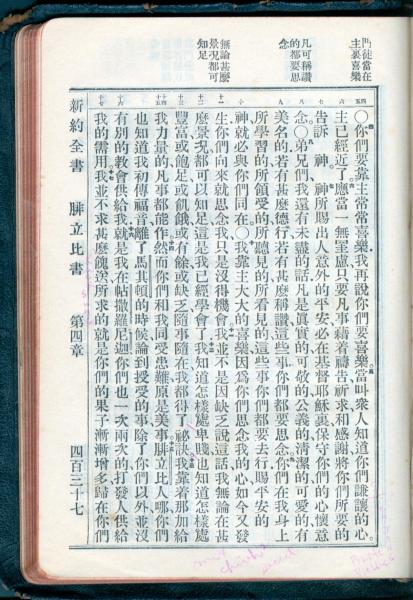 門徒當在
主裏喜樂
凡可稱讚
的都要思
念
無論甚麼
景況都可
知足
〇你們要靠主常常喜樂我再說你們要喜樂當叫衆人知道你們謙讓的心
主已經近了應當一無罣慮只要凡事藉着禱告祈求和感謝將你們所要的
告訴 神、神所賜出人意外的平安必在基督耶穌裏保守你們的心懷意
念〇弟兄們我還有未盡的話凡是眞實的可敬的公義的清潔的可愛的有
美名的若有甚麼德行若有甚麼稱讚這些事你們都要思念你們在我身上
所學習的所領受的所聽見的所看見的這些事你們都要去行賜平安的
神就必與你們同在〇我靠主大大的喜樂因爲你們思念我的心如今又發
生你們向來就思念我只是沒得機會我並不是因缺乏說這話我無論在甚
麼景況都可以知足這是我已經學會了我知道怎樣處卑賤也知道怎樣處
豐富或飽足或飢餓或有餘或缺乏隨事隨在我都得了祕訣我靠着那加給
我力量的凡事都能作然而你們和我同受患難原是美事腓立比人哪你們
也知道我初傳福音離了馬其頓的時候論到授受的事除了你們以外並沒
有別的教會供給我就是我在帖撒羅尼迦你們也一次兩次的打發人供給
我的需用我並不求甚麼餽送所求的就是你們的果子漸漸增多歸在你們
新約全書 腓立比書 第四章 四百三十七